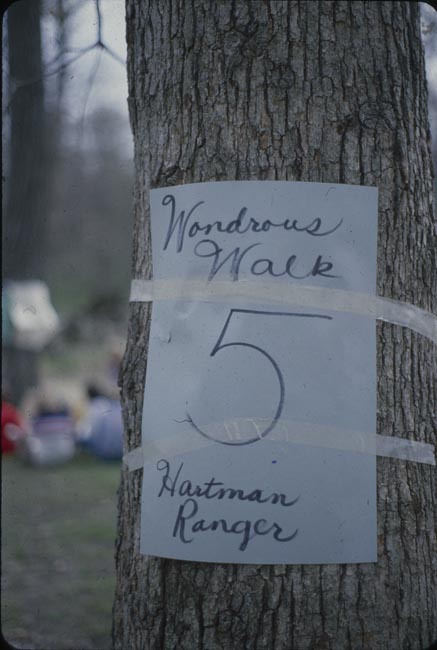 Wondrous
Walk
5
Hartman
Ranger